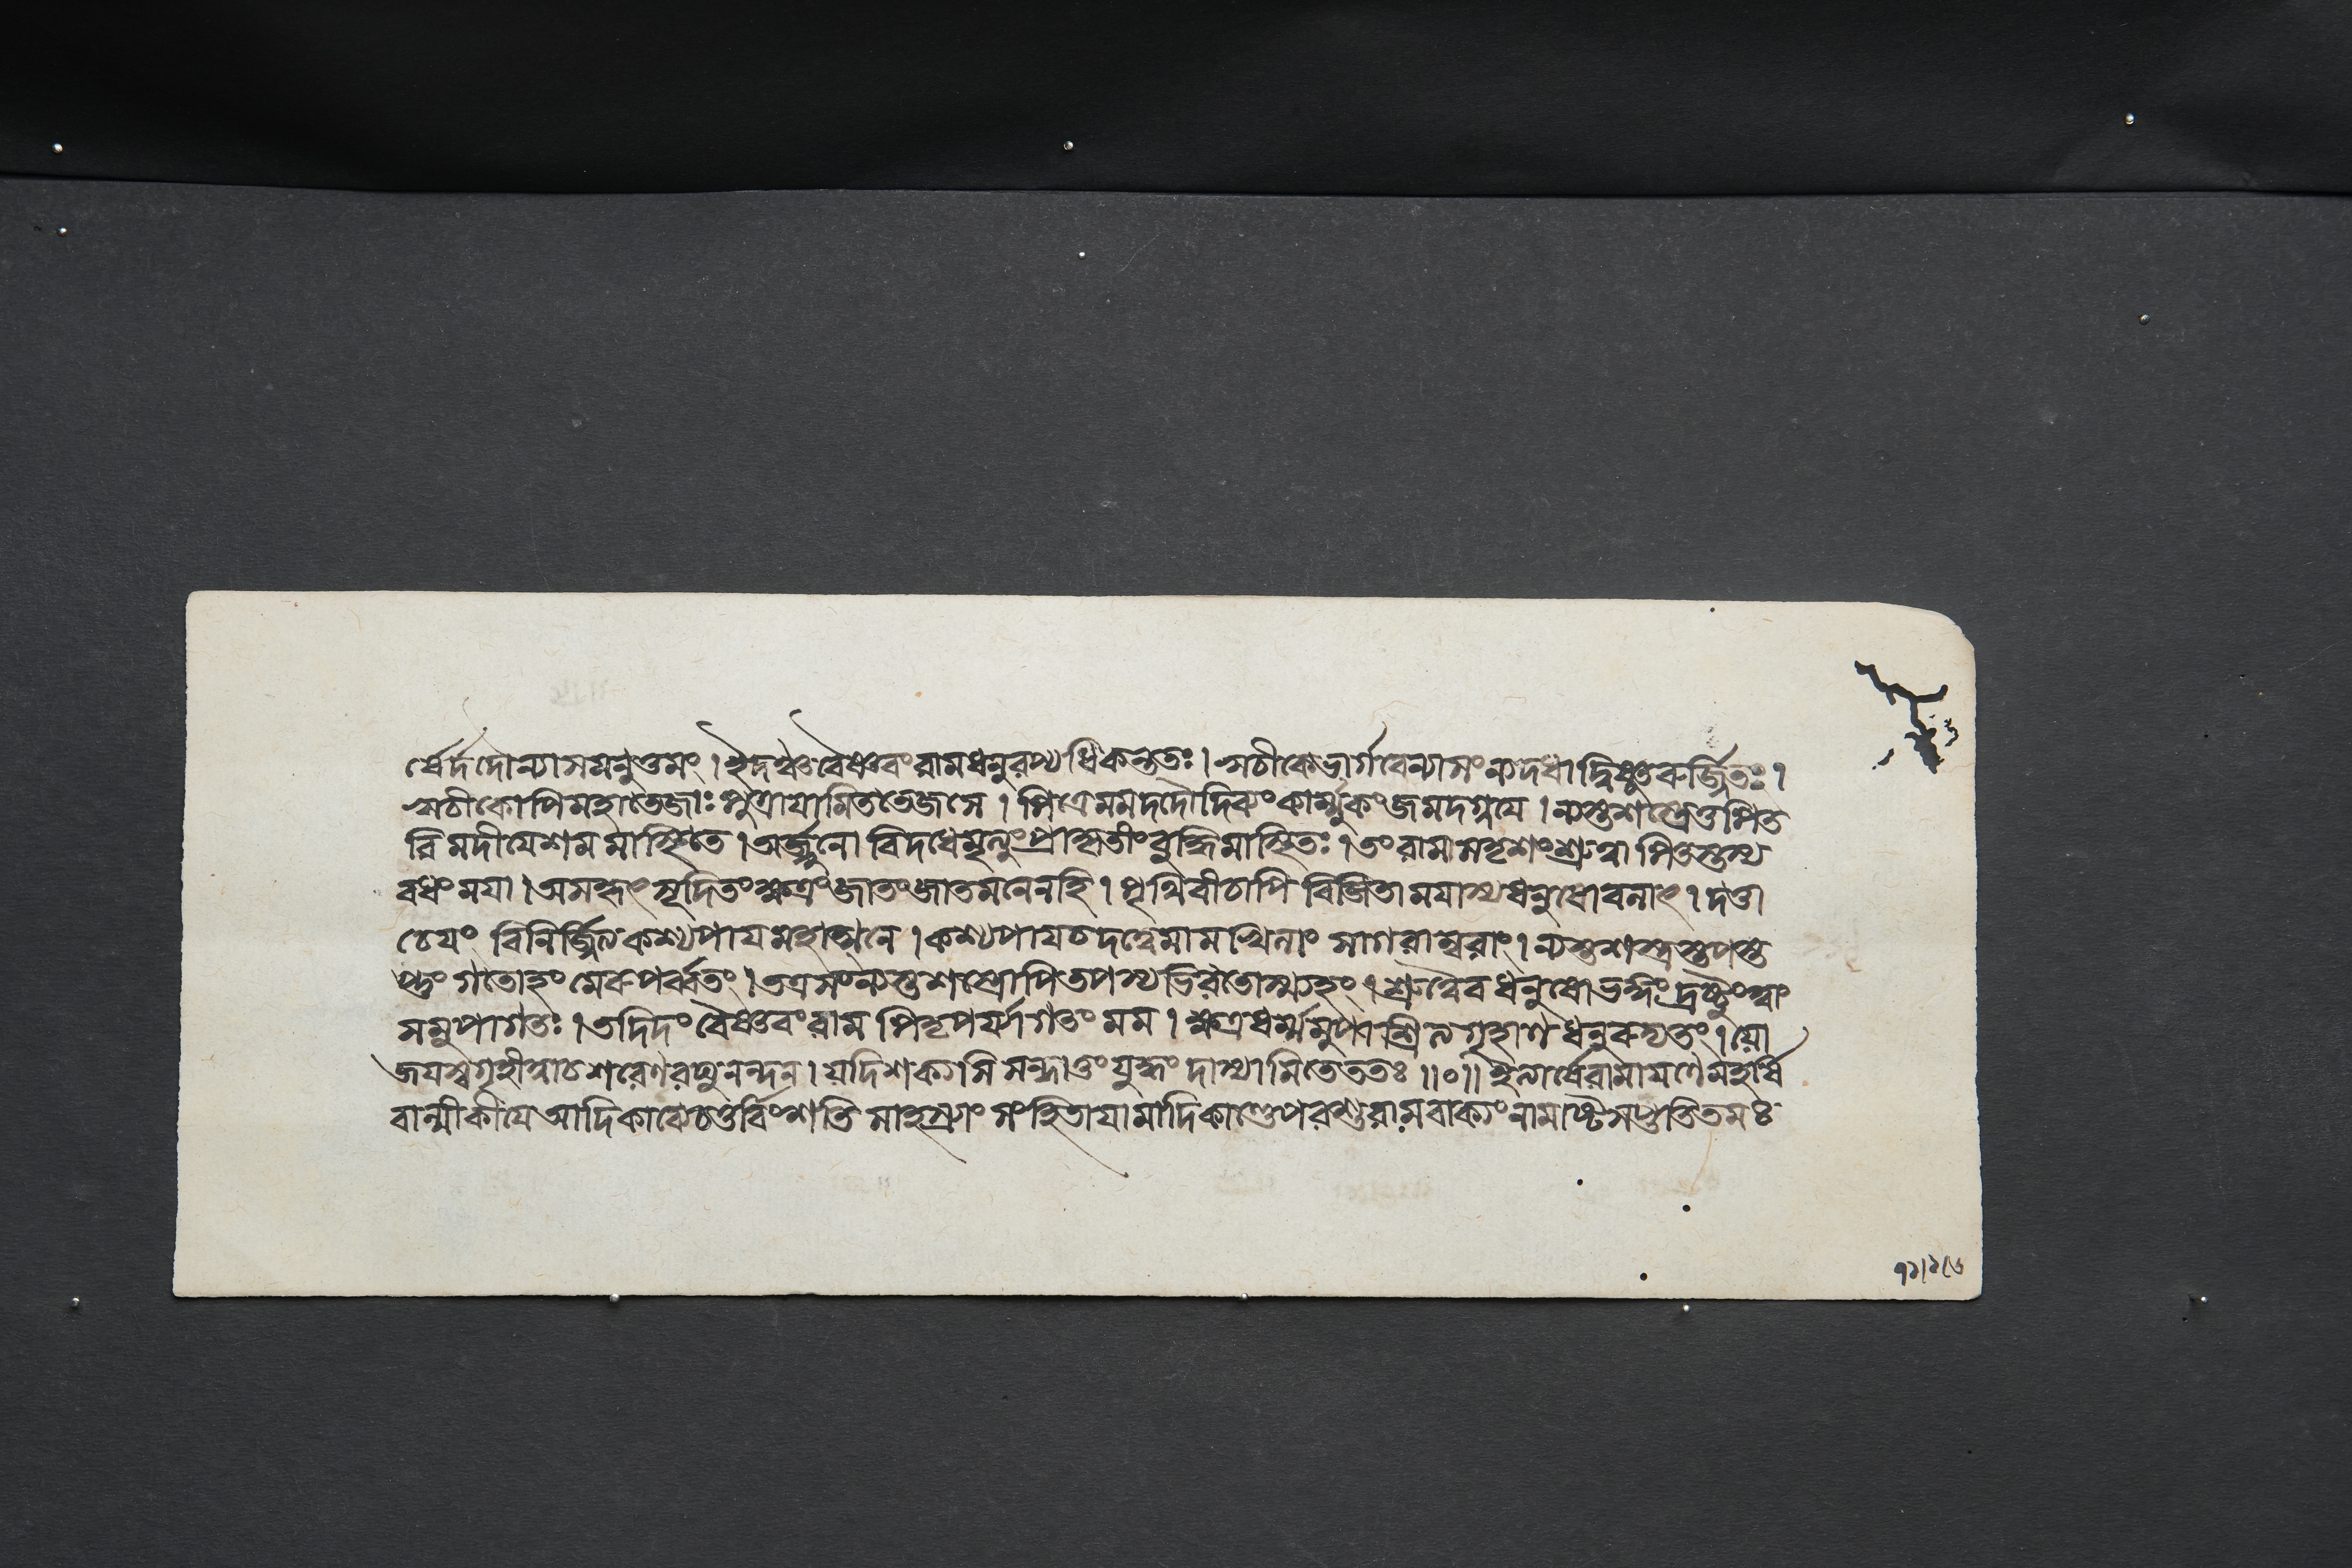 র্ষের্দদৌন্যাসমনুত্তমং । ইদঞ্চবৈষ্ণবংরামধনুরপ্যধিকন্ততঃ । ঋচীকেভার্গবেন্যাসংন্যদধাদ্বিষ্ণুরুর্জ্জিতঃ ।
ঋচীকোপিমহাতেজাঃপুত্রাযামিততেজসে । পিত্রেমমদদৌদিব্যংকার্ম্মুকংজমদগ্নযে । ন্যস্তশস্ত্রেতুপিত
রিমদীযেশমমাস্থিতে । অর্জ্জুনো বিদধেমৃত্যুংপ্রাকৃতীংবুদ্ধিমাস্থিতঃ । তংরামাসদৃশংশ্রুত্বা পিতুস্তস্য
বধংমযা । অসকৃৎসূদিতংক্ষত্রংজাতংজাতমনেনহি । পৃথিবীচাপি বিজিতামযাস্যধনুষোবলাৎ । দত্তা
চেযং বিনির্জ্জিত্যকশ্যপাযমহাত্মনে । কশ্যপাযচদত্ত্বেমামখিলাং সাগরাম্বরাং । ন্যস্তশস্ত্রস্তপস্ত
প্তুংগতোহংমেরুপর্ব্বতং । তত্রসংন্যস্তশস্ত্রোপিতপস্যভিরতোস্ম্যহং । শ্রুত্বৈবধনুষোভঙ্গংদ্রষ্টুংত্বাং
সমুপাগতঃ । তদিদংবৈষ্ণবংরাম পিতৃপর্য্যাগতংমম । ক্ষত্রধর্ম্মমুপাশ্রিত্যগৃহাণধনুরুদ্যতং । যো
জযস্বগৃহীত্বাচশরেণরঘুনন্দন । যদিশক্যসি সন্ধাতুংযুদ্ধংদাস্যামিতেততঃ ॥০॥ ইত্যার্ষেরামাযণেমহর্ষি
বাল্মীকীযে আদিকাব্যেচতুর্বিংশতি সাহস্র্যাংসংহিতাযামাদিকাণ্ডেপরশুরামবাক্যংনামাষ্টসপ্ততিতমঃ